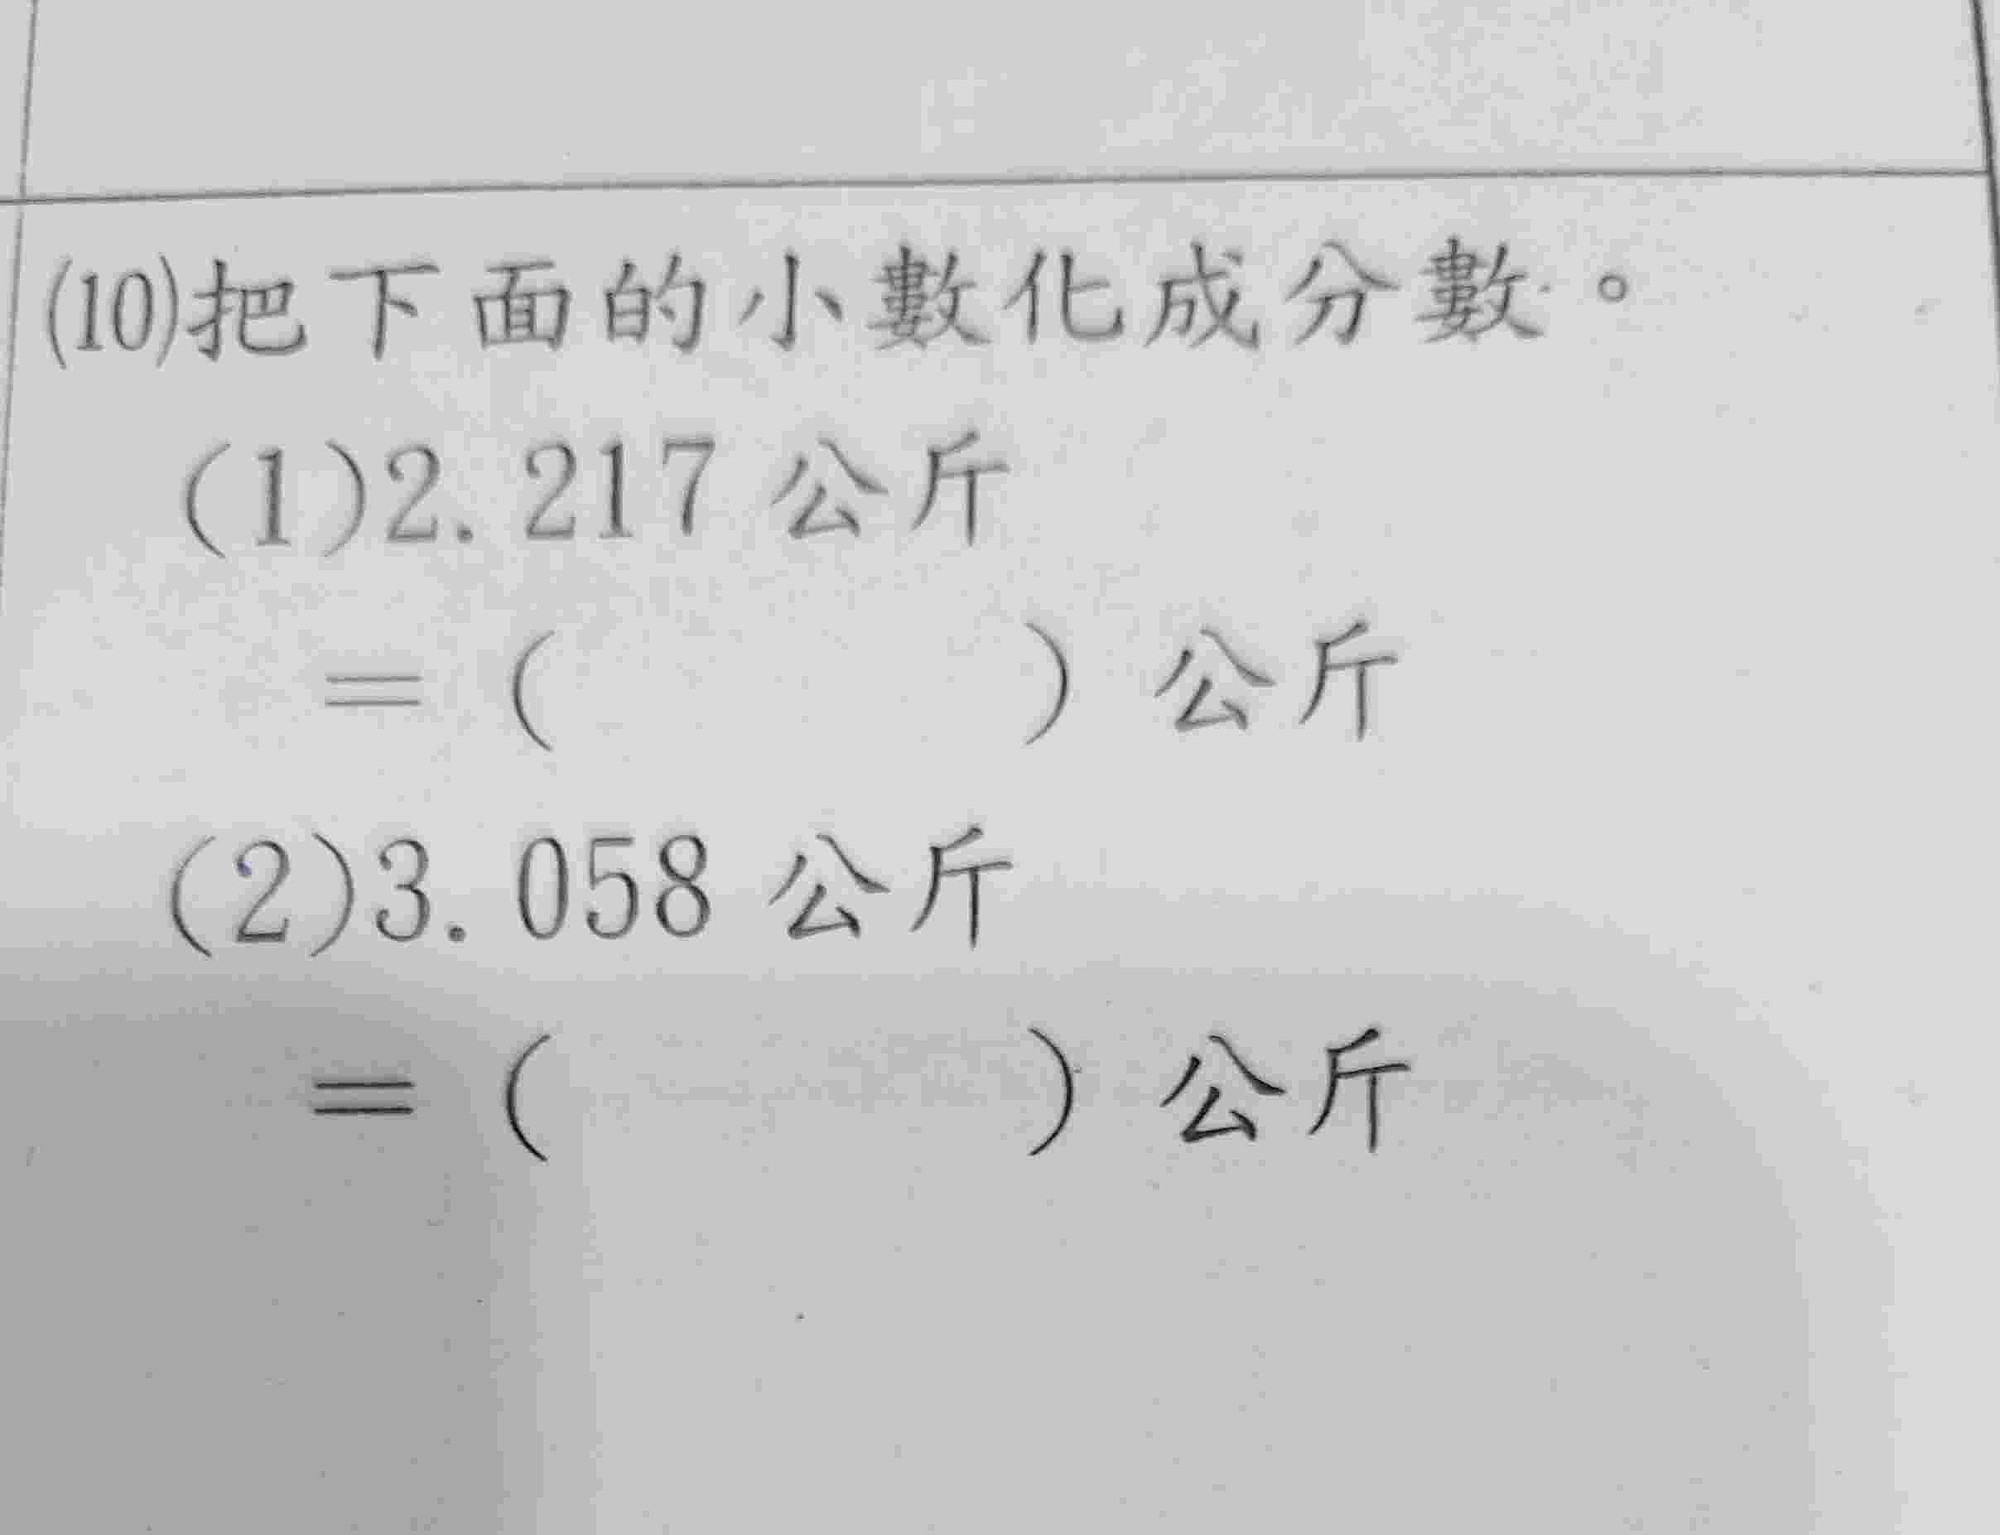 (10)把下面的小數化成分數。
(1)2.217 公斤
=( ) 公斤
(2)3.058 公斤
=( ) 公斤